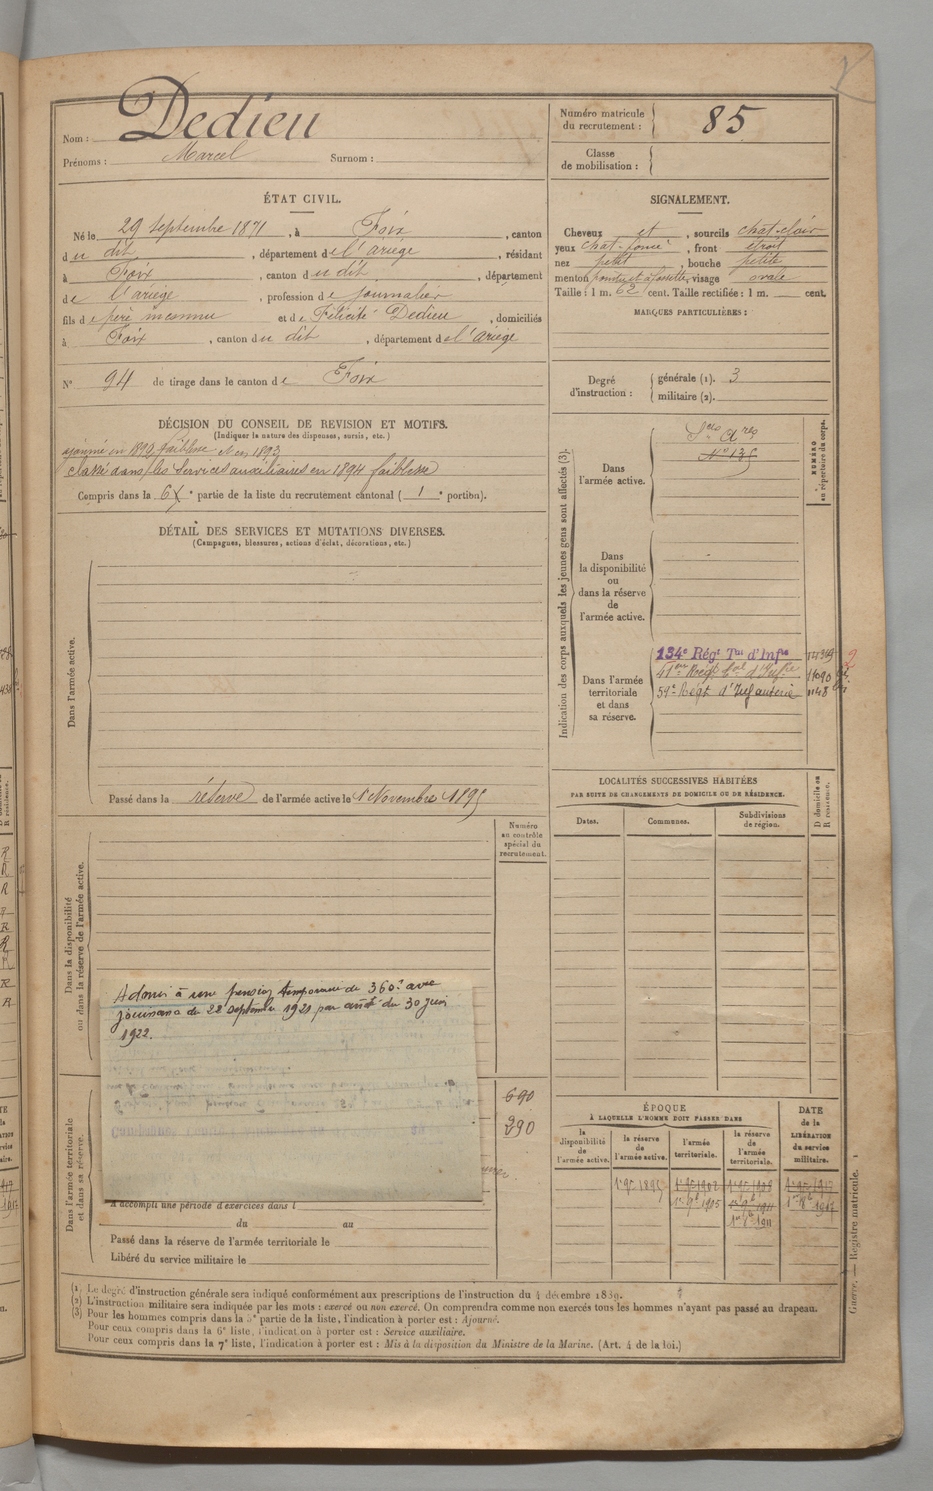 Nom : Dedieu
Prénoms : Marcel Surnom :
Numéro matricule du recrutement : 85
Classe de mobilisation :
ÉTAT CIVIL.
Né le 29 Septembre 1871, à Foix, canton
du dit, département de l'ariège, résidant
à Foix, canton du dit, département
de l'ariège, profession de journalier
fils de père inconnu et de Félicité Dedieu, domiciliés
à Foix, canton du dit, département de l'ariège
N° 94 de tirage dans le canton de Foix
SIGNALEMENT.
Cheveux et, sourcils chat-clair
yeux chat-foncé, front étroit
nez petit, bouche petite
menton pointu et à fossette, visage ovale
Taille : 1 m. 62 cent. Taille rectifiée : 1 m. cent.
MARQUES PARTICULIÈRES :
Degré d'instruction : générale (1). 3
militaire (2).
DÉCISION DU CONSEIL DE REVISION ET MOTIFS.
(Indiquer la nature des dispenses, sursis, etc.)
ajourné en 1892, faiblesse et en 1893
classé dans les Services auxiliaires en 1894 faiblesse
Compris dans la 6e partie de la liste du recrutement cantonal ( 1e portion).
DÉTAIL DES SERVICES ET MUTATIONS DIVERSES.
(Campagnes, blessures, actions d'éclat, décorations, etc.)
Dans l'armée active.
Passé dans la réserve de l'armée active le 1er Novembre 1895
Indication des corps auxquels les jeunes gens sont affectés (3).
NUMÉRO au répertoire du corps.
Dans l'armée active.
N° 135
Dans la disponibilité ou dans la réserve de l'armée active.
Dans l'armée territoriale et dans sa réserve.
134e Régt Tal d'Infie
59e Régt d'Infanterie 1148
LOCALITÉS SUCCESSIVES HABITÉES
PAR SUITE DE CHANGEMENTS DE DOMICILE OU DE RÉSIDENCE.
Dates. Communes. Subdivisions de région. D domicile ou R résidence.
Numéro au contrôle spécial du recrutement.
Dans la disponibilité ou dans la réserve de l'armée active.
Admis à une pension temporaire de 360f avec
jouissance du 28 septembre 1921 par arrêté du 30 juin
1922.
690
390
Dans l'armée territoriale et dans sa réserve.
A accompli une période d'exercices dans l
du au
Passé dans la réserve de l'armée territoriale le
Libéré du service militaire le
ÉPOQUE
À LAQUELLE L'HOMME DOIT PASSER DANS
la disponibilité de l'armée active. la réserve de l'armée active. l'armée territoriale. la réserve de l'armée territoriale.
DATE de la LIBÉRATION du service militaire.
Guerre. — Registre matricule. 1
(1) Le degré d'instruction générale sera indiqué conformément aux prescriptions de l'instruction du 4 décembre 1889.
(2) L'instruction militaire sera indiquée par les mots : exercé ou non exercé. On comprendra comme non exercés tous les hommes n'ayant pas passé au drapeau.
(3) Pour les hommes compris dans la 5e partie de la liste, l'indication à porter est : Ajourné.
Pour ceux compris dans la 6e liste, l'indication à porter est : Service auxiliaire.
Pour ceux compris dans la 7e liste, l'indication à porter est : Mis à la disposition du Ministre de la Marine. (Art. 4 de la loi.)